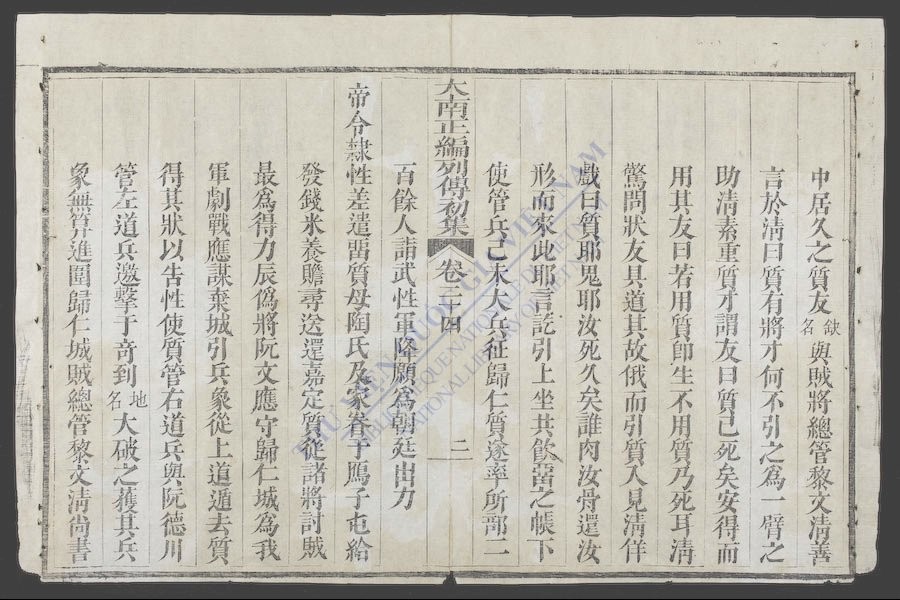 中居久之質友缺名與賊將總管黎文淸善
言於淸曰質有將才何不引之為一臂之
助淸素重質才謂友曰質已死矣安得而
用其友曰若用質卽生不用質乃死耳淸
驚問狀友具道其故俄而引質入見淸佯
戲曰質耶鬼耶汝死久矣誰肉汝骨還汝
形而來此耶言訖引上坐共飲畱之帳下
使管兵己未大兵征歸仁質遂率所部二
大南正編列傳初集 卷三十四 二
百餘人詣武性軍降願為朝廷出力
帝令隷性差遣畱質母陶氏及家眷于子屯給
發錢米養贍尋送還嘉定質從諸將討賊
最為得力辰僞將阮文應守歸仁城為我
軍劇戰應謀棄城引兵象從上道遁去質
得其狀以告性使質管右道兵與阮德川
管左道兵邀擊于奇到地名大破之獲其兵
象無算進圍歸仁城賊總管黎文淸尚書